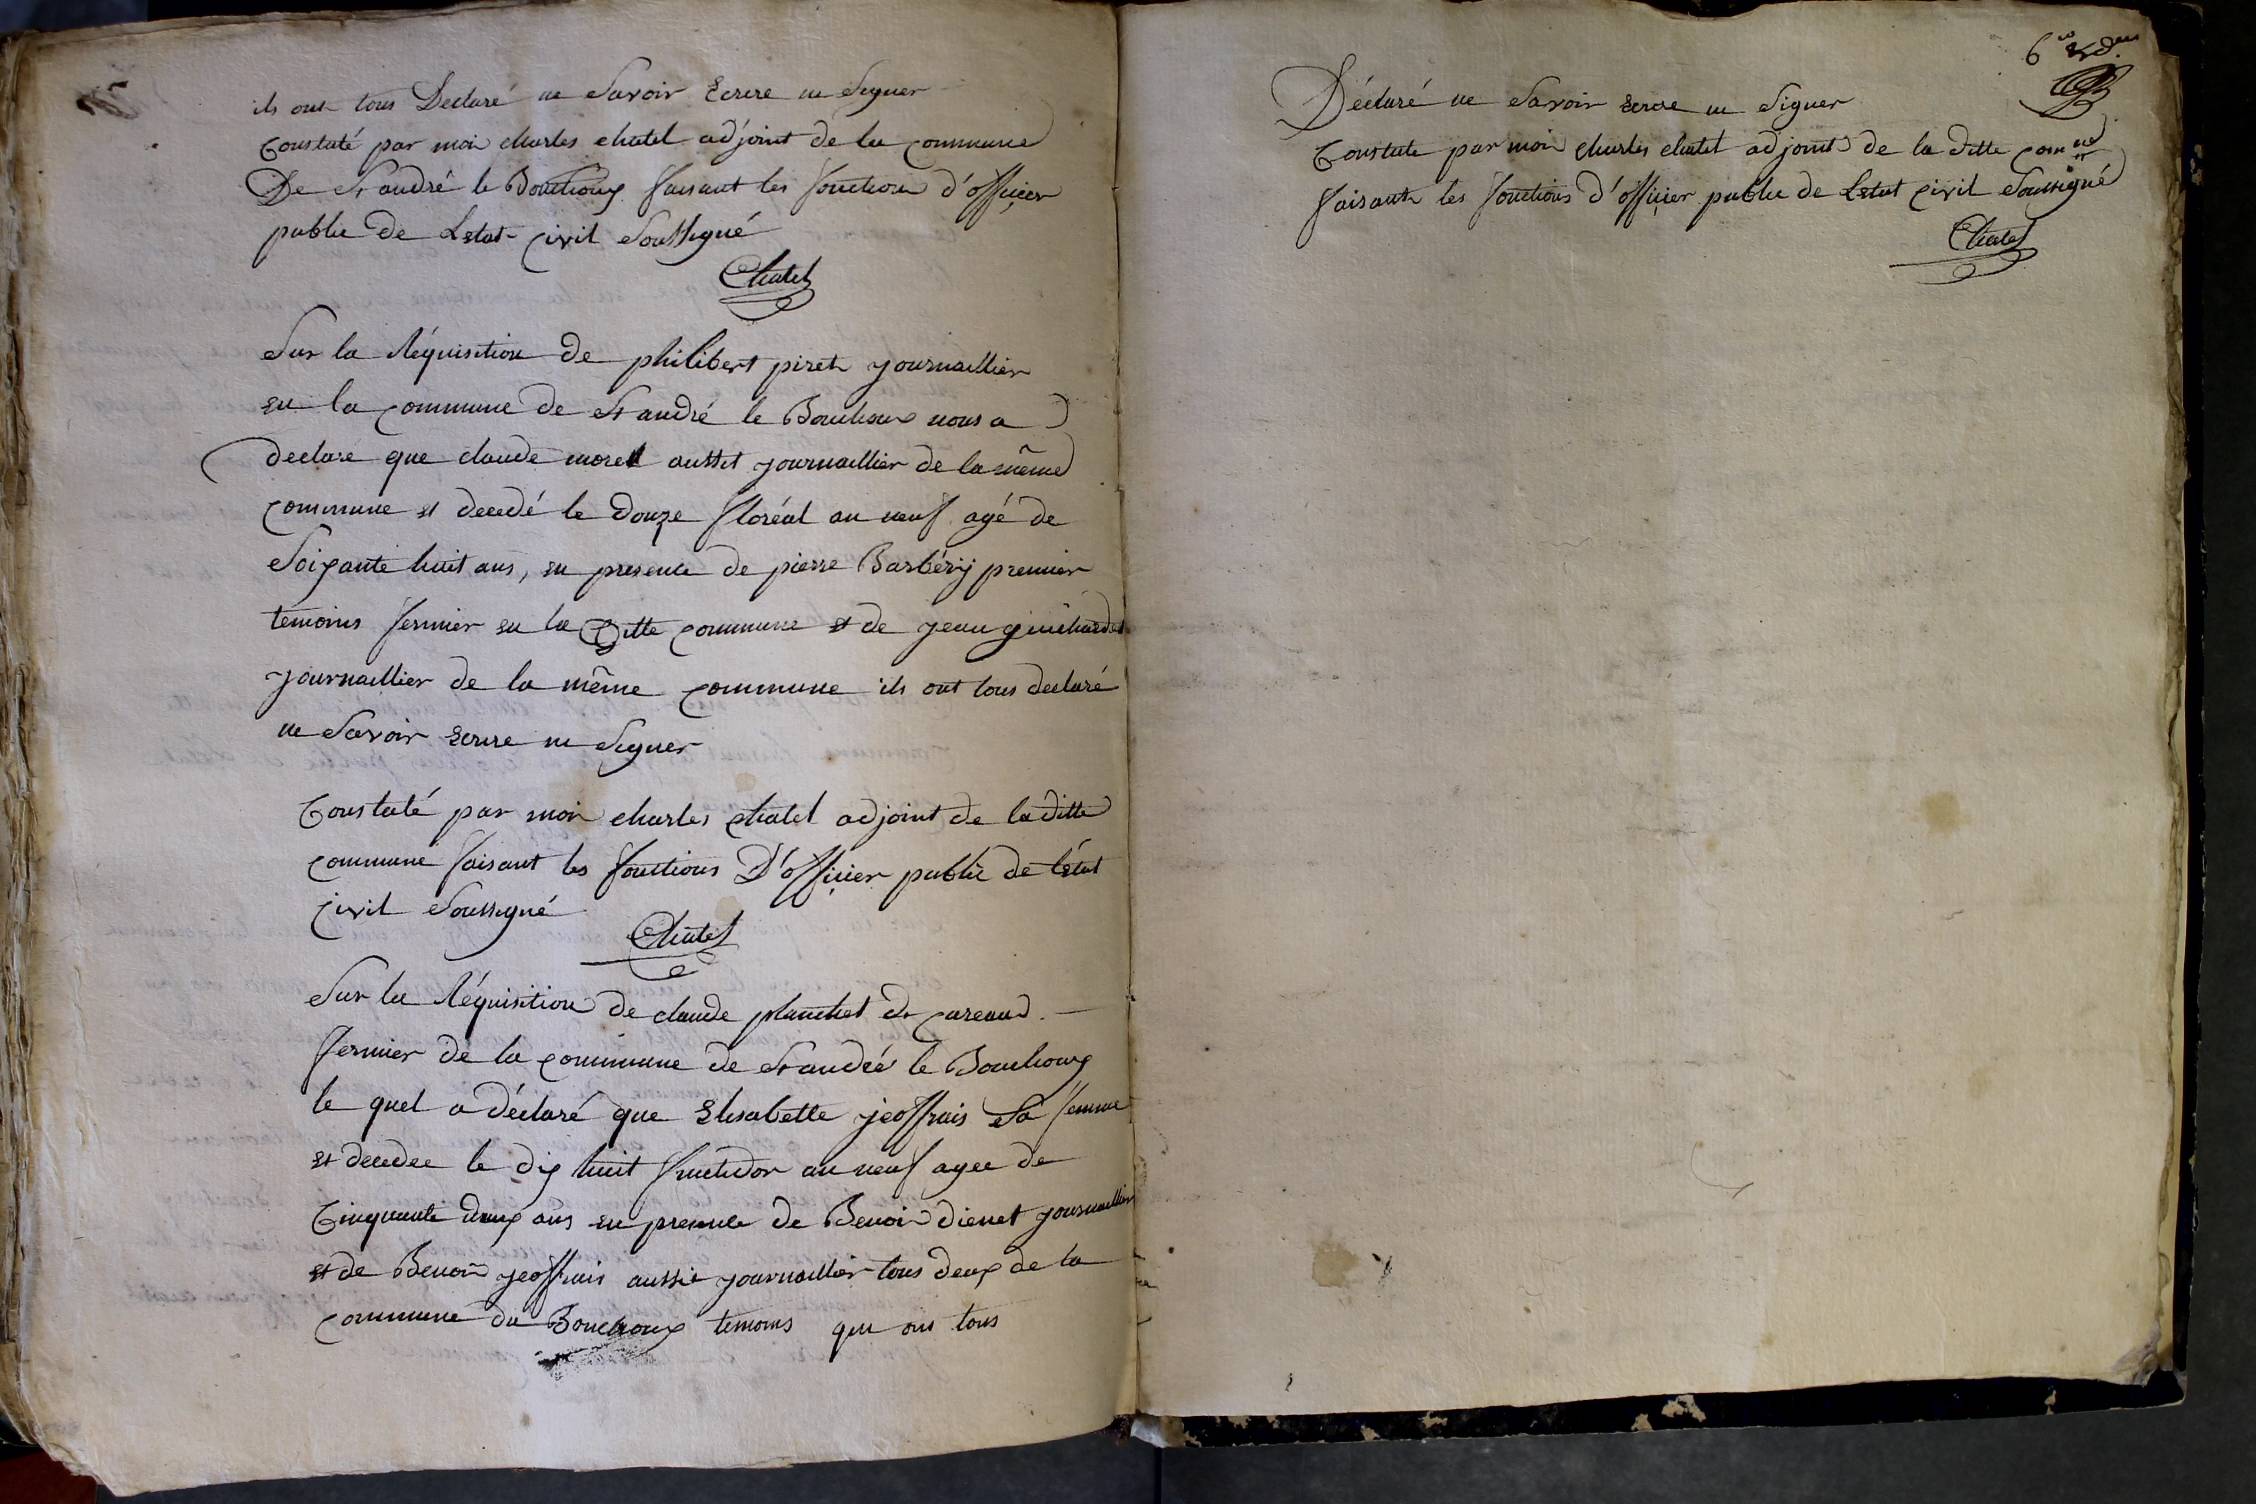 ils ont tous Declaré ne Savoir Ecrire ni Signer
Constaté par moi charles chatel adjoint de la commune
De St andré le Bouchoux faisant les fonctions d'officier
public de L'etat civil Soussigné
Chatel
Sur la Réquisition de philibert piret journaillier
en la commune de St andré le Bouchoux nous a
declaré que claude morel aussit journaillier de la même
commune et decedé le douze floréal an neuf agé de
Soixante huit ans, en presence de pierre Barbérij premier
temoins fermier en la Ditte commune et de jean guichardet
journaillier de la même commune ils ont tous declaré
ne Savoir Ecrire ni Signer
Constaté par moi charles chatel adjoint de la ditte
commune faisant les fonctions D'officier public de l'état
civil Soussigné
Chatel
Sur la Réquisition de claude planchet de careaud
fermier de la commune de St andré le Bouchoux
le quel a déclaré que Elisabette jeoffrais Sa femme
et decedee le dix huit fructidor an neuf agee de
Cinquante deux ans en presence de Benoi dienet journaillier
et de Benoi jeoffrais aussit journaillier tous deux de la
commune du Bouchoux temoins qui ons tous
6
Déclaré ne Savoir Ecrire ni Signer
Constate par moi charles chatel adjoint de la ditte comune
faisant les fonctions d'officier public de L'etat civil Soussigné
Chatel